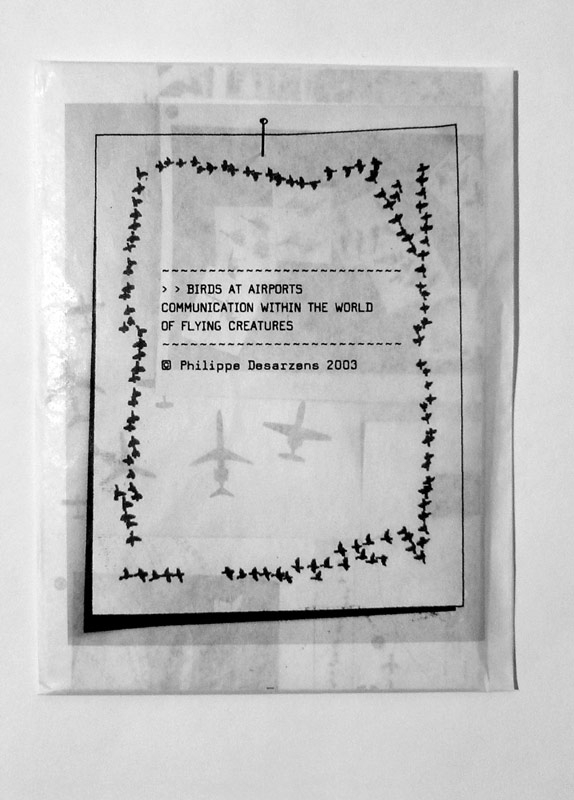 ~~~~~~~~~~~~~~~~~~~~~~~~~~
> > BIRDS AT AIRPORTS
COMMUNICATION WITHIN THE WORLD
OF FLYING CREATURES
~~~~~~~~~~~~~~~~~~~~~~~~~~
© Philippe Desarzens 2003